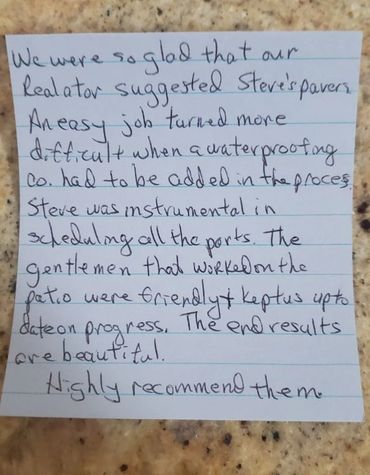 We were so glad that our
Realator suggested Steve's pavers
An easy job turned more
difficult when a waterproofing
co. had to be added in the proces.
Steve was instrumental in
scheduling all the parts. The
gentlemen that worked on the
patio were friendly + kept us up to
date on progress. The end results
are beautiful.
Highly recommend them.